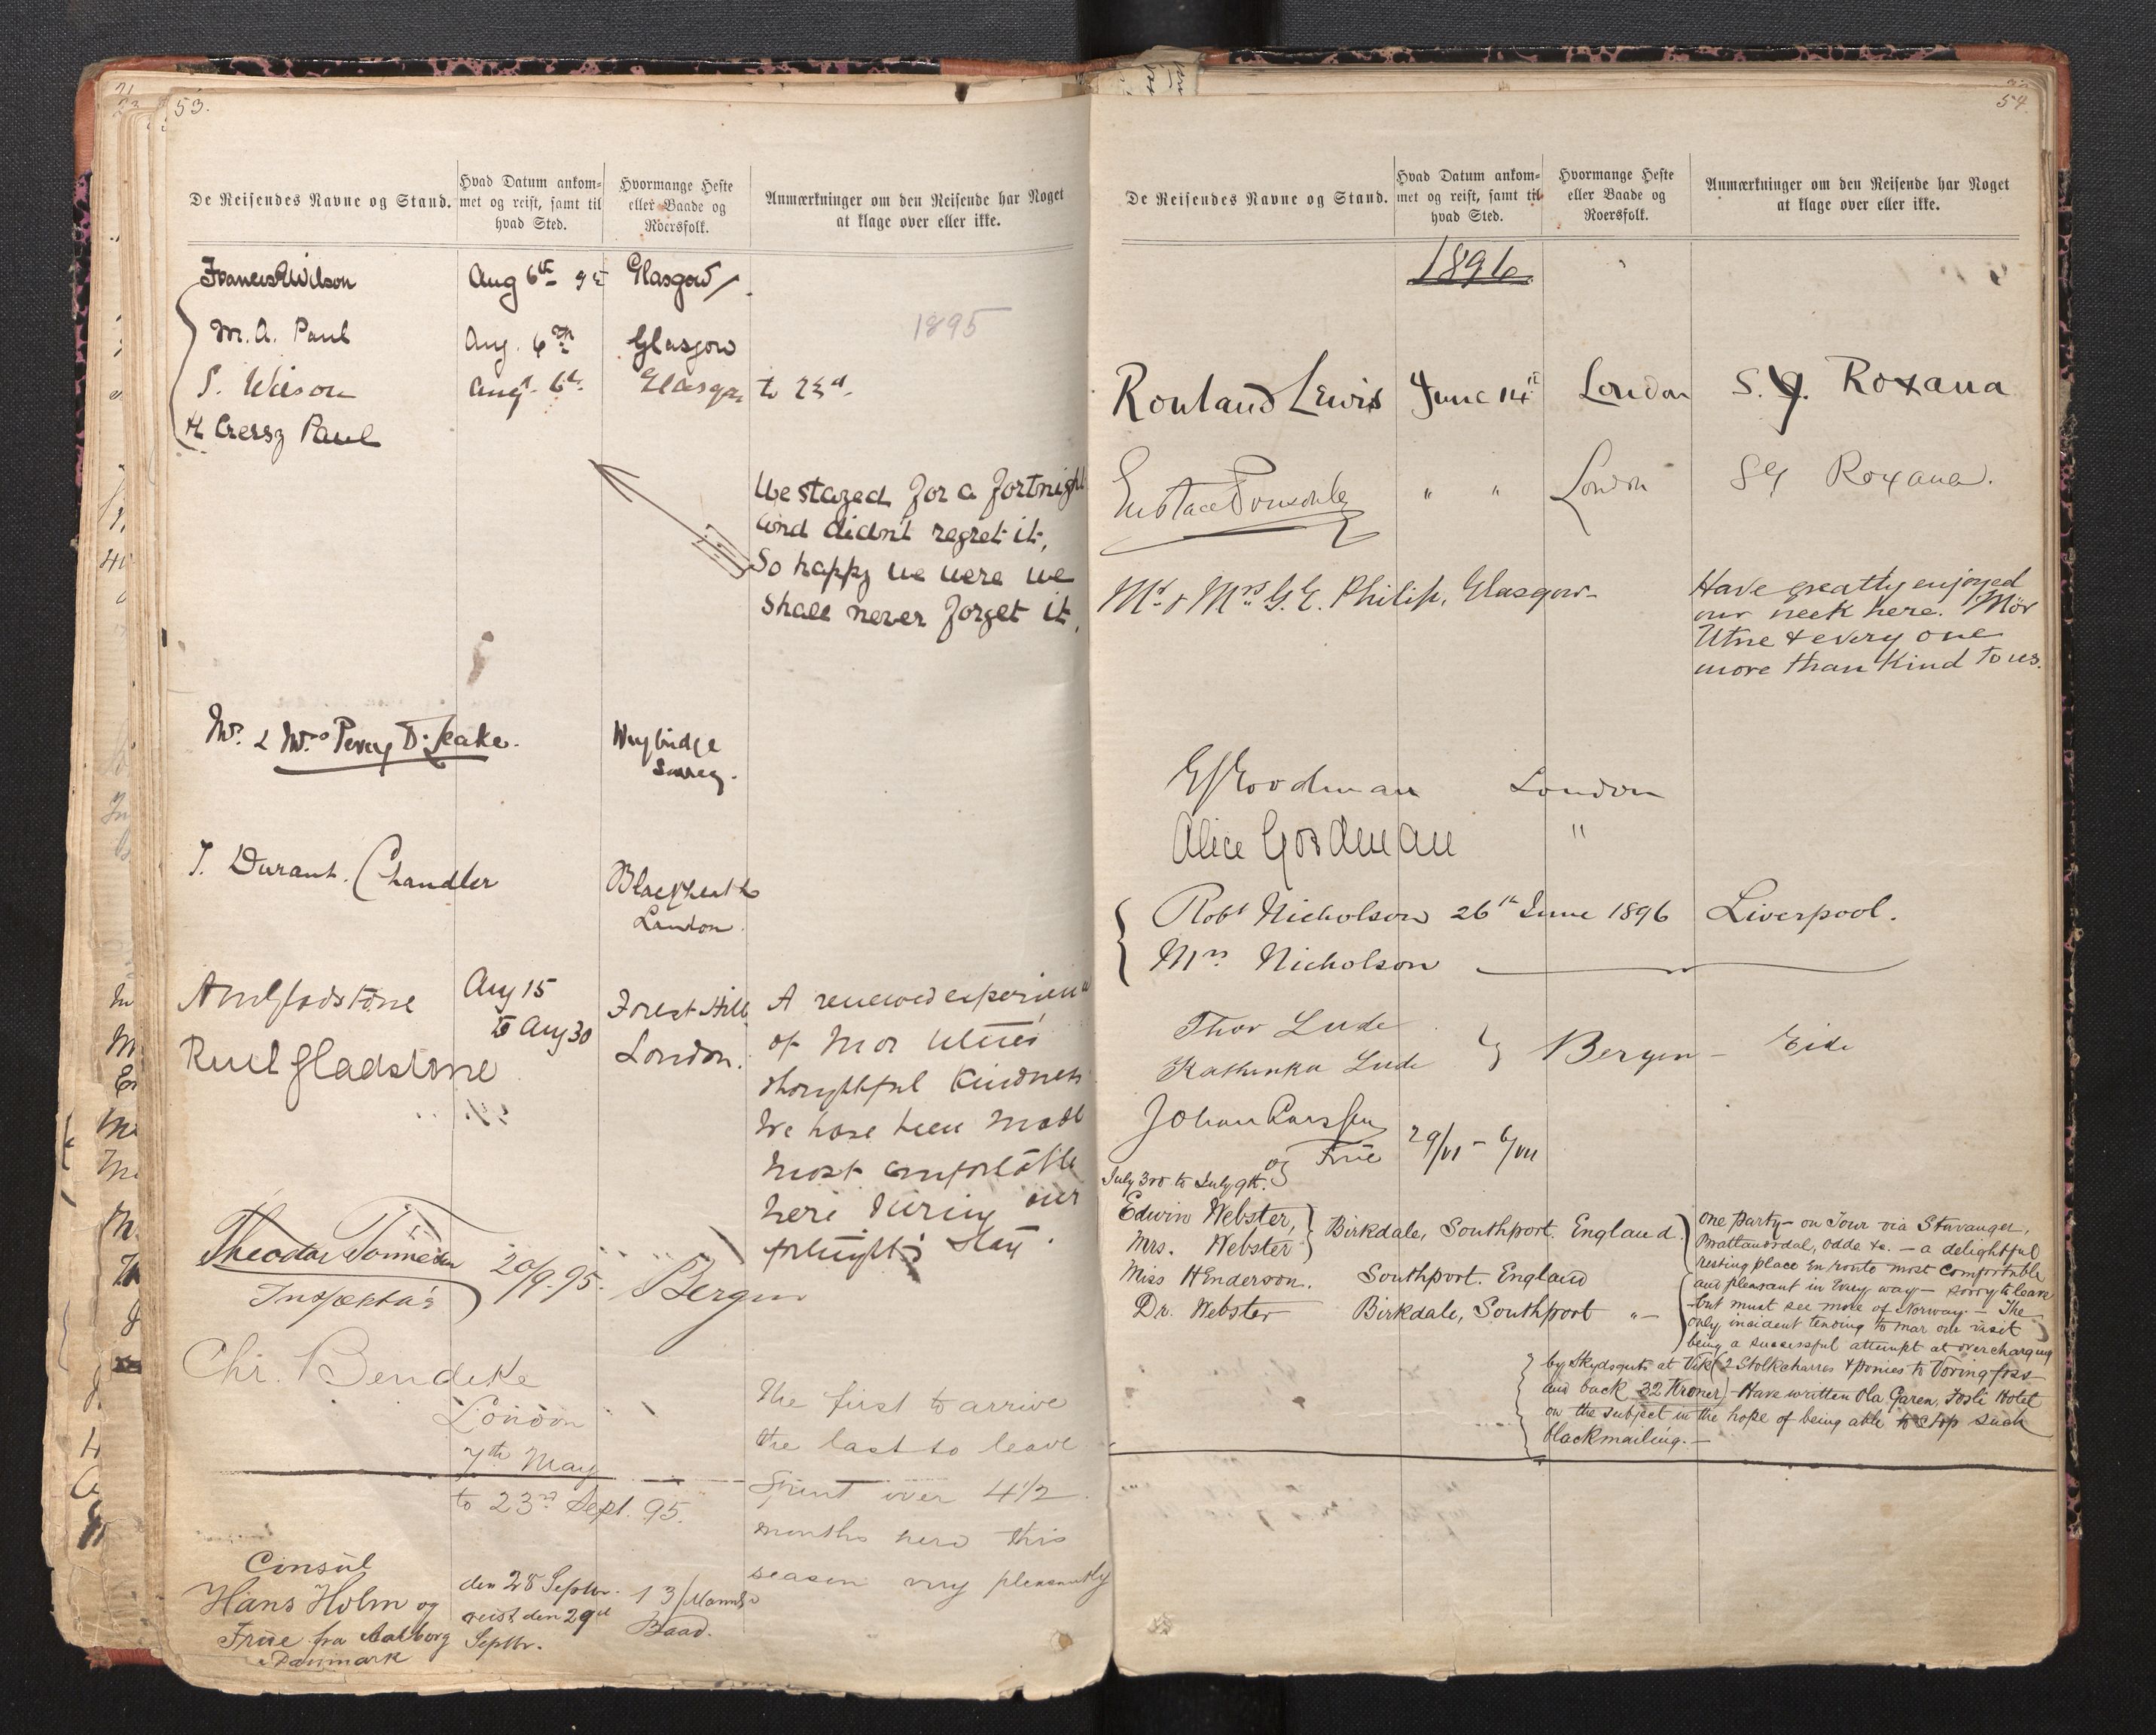 53.
De Reisendes Navne og Stand.
Hvad Datum ankom-
met og reist, samt til
hvad Sted.
Hvormange Heste
eller Baade og
Roersfolk.
Anmærkninger om den Reisende har Noget
at klage over eller ikke.
Wilson Aug 6th 95 Glasgow
M. A. Paul Aug. 6th Glasgow
1895
Wilson Augt 6th Glasgow to 23d.
H Cressy Paul
We stayed for a fortnight
and didn't regret it,
So happy we were we
shall never forget it,
Mr. & Mrs Percy D. Leake.
Weybridge
Surrey.
T. Durant. Chandler
Blackheath
London.
Gladstone
Aug 15
to Aug 30
Gladstone
Forest Hill
London.
A renewed experience
of Mor Utnes
thoughtful kindness
We have been made
most comfortable
here during our
fortnight's stay.
Theodor
20/9.95. Bergen
Chr. Bendeke
London
7th May
to 23rd Sept. 95.
The first to arrive
the last to leave
Spent over 4 1/2
months here this
season very pleasantly
Consul
Hans Holm og
Frue fra Aalborg
Danmark
den 28 Septbr.
reist den 29d
Septbr.
1 3/Mands
Baad.
54.
De Reisendes Navne og Stand.
Hvad Datum ankom-
met og reist, samt til
hvad Sted.
Hvormange Heste
eller Baade og
Roersfolk.
Anmærkninger om den Reisende har Noget
at klage over eller ikke.
1896
Rowland Lewis June 14th London S.Y. Roxana
Eustace Ponsonby " " London SY Roxana.
Mr & Mrs G. E. Philip, Glasgow
Have greatly enjoyed
our week here. Mör
Utne & every one
more than kind to us.
Goodman London
Alice Goodman "
Robt Nicholson 26th June 1896 Liverpool.
Mrs Nicholson
Thor Lude
Kathinka Lude
Bergen - Eide
Johan
og Frue 29/VI - 6/VII
July 3rd to July 9th.
Edwin Webster,
Mrs. Webster
Birkdale, Southport. England.
Miss Henderson. Southport. England
Dr. Webster Birkdale, Southport "-
One party - on Tour via Stavanger,
Brattlandsdal, Odde &c. - a delightful
resting place en route most comfortable
and pleasant in every way - sorry to leave
but must see more of Norway. - The
only incident tending to mar our visit
being a successful attempt at overcharging
by Skydsguts at Vik (2 Stolkcharres & ponies to Voringfoss
and back 32 Kroner) - Have written Ola Garen, Fosli Hotel
on the subject in the hope of being able to stop such
blackmailing. -